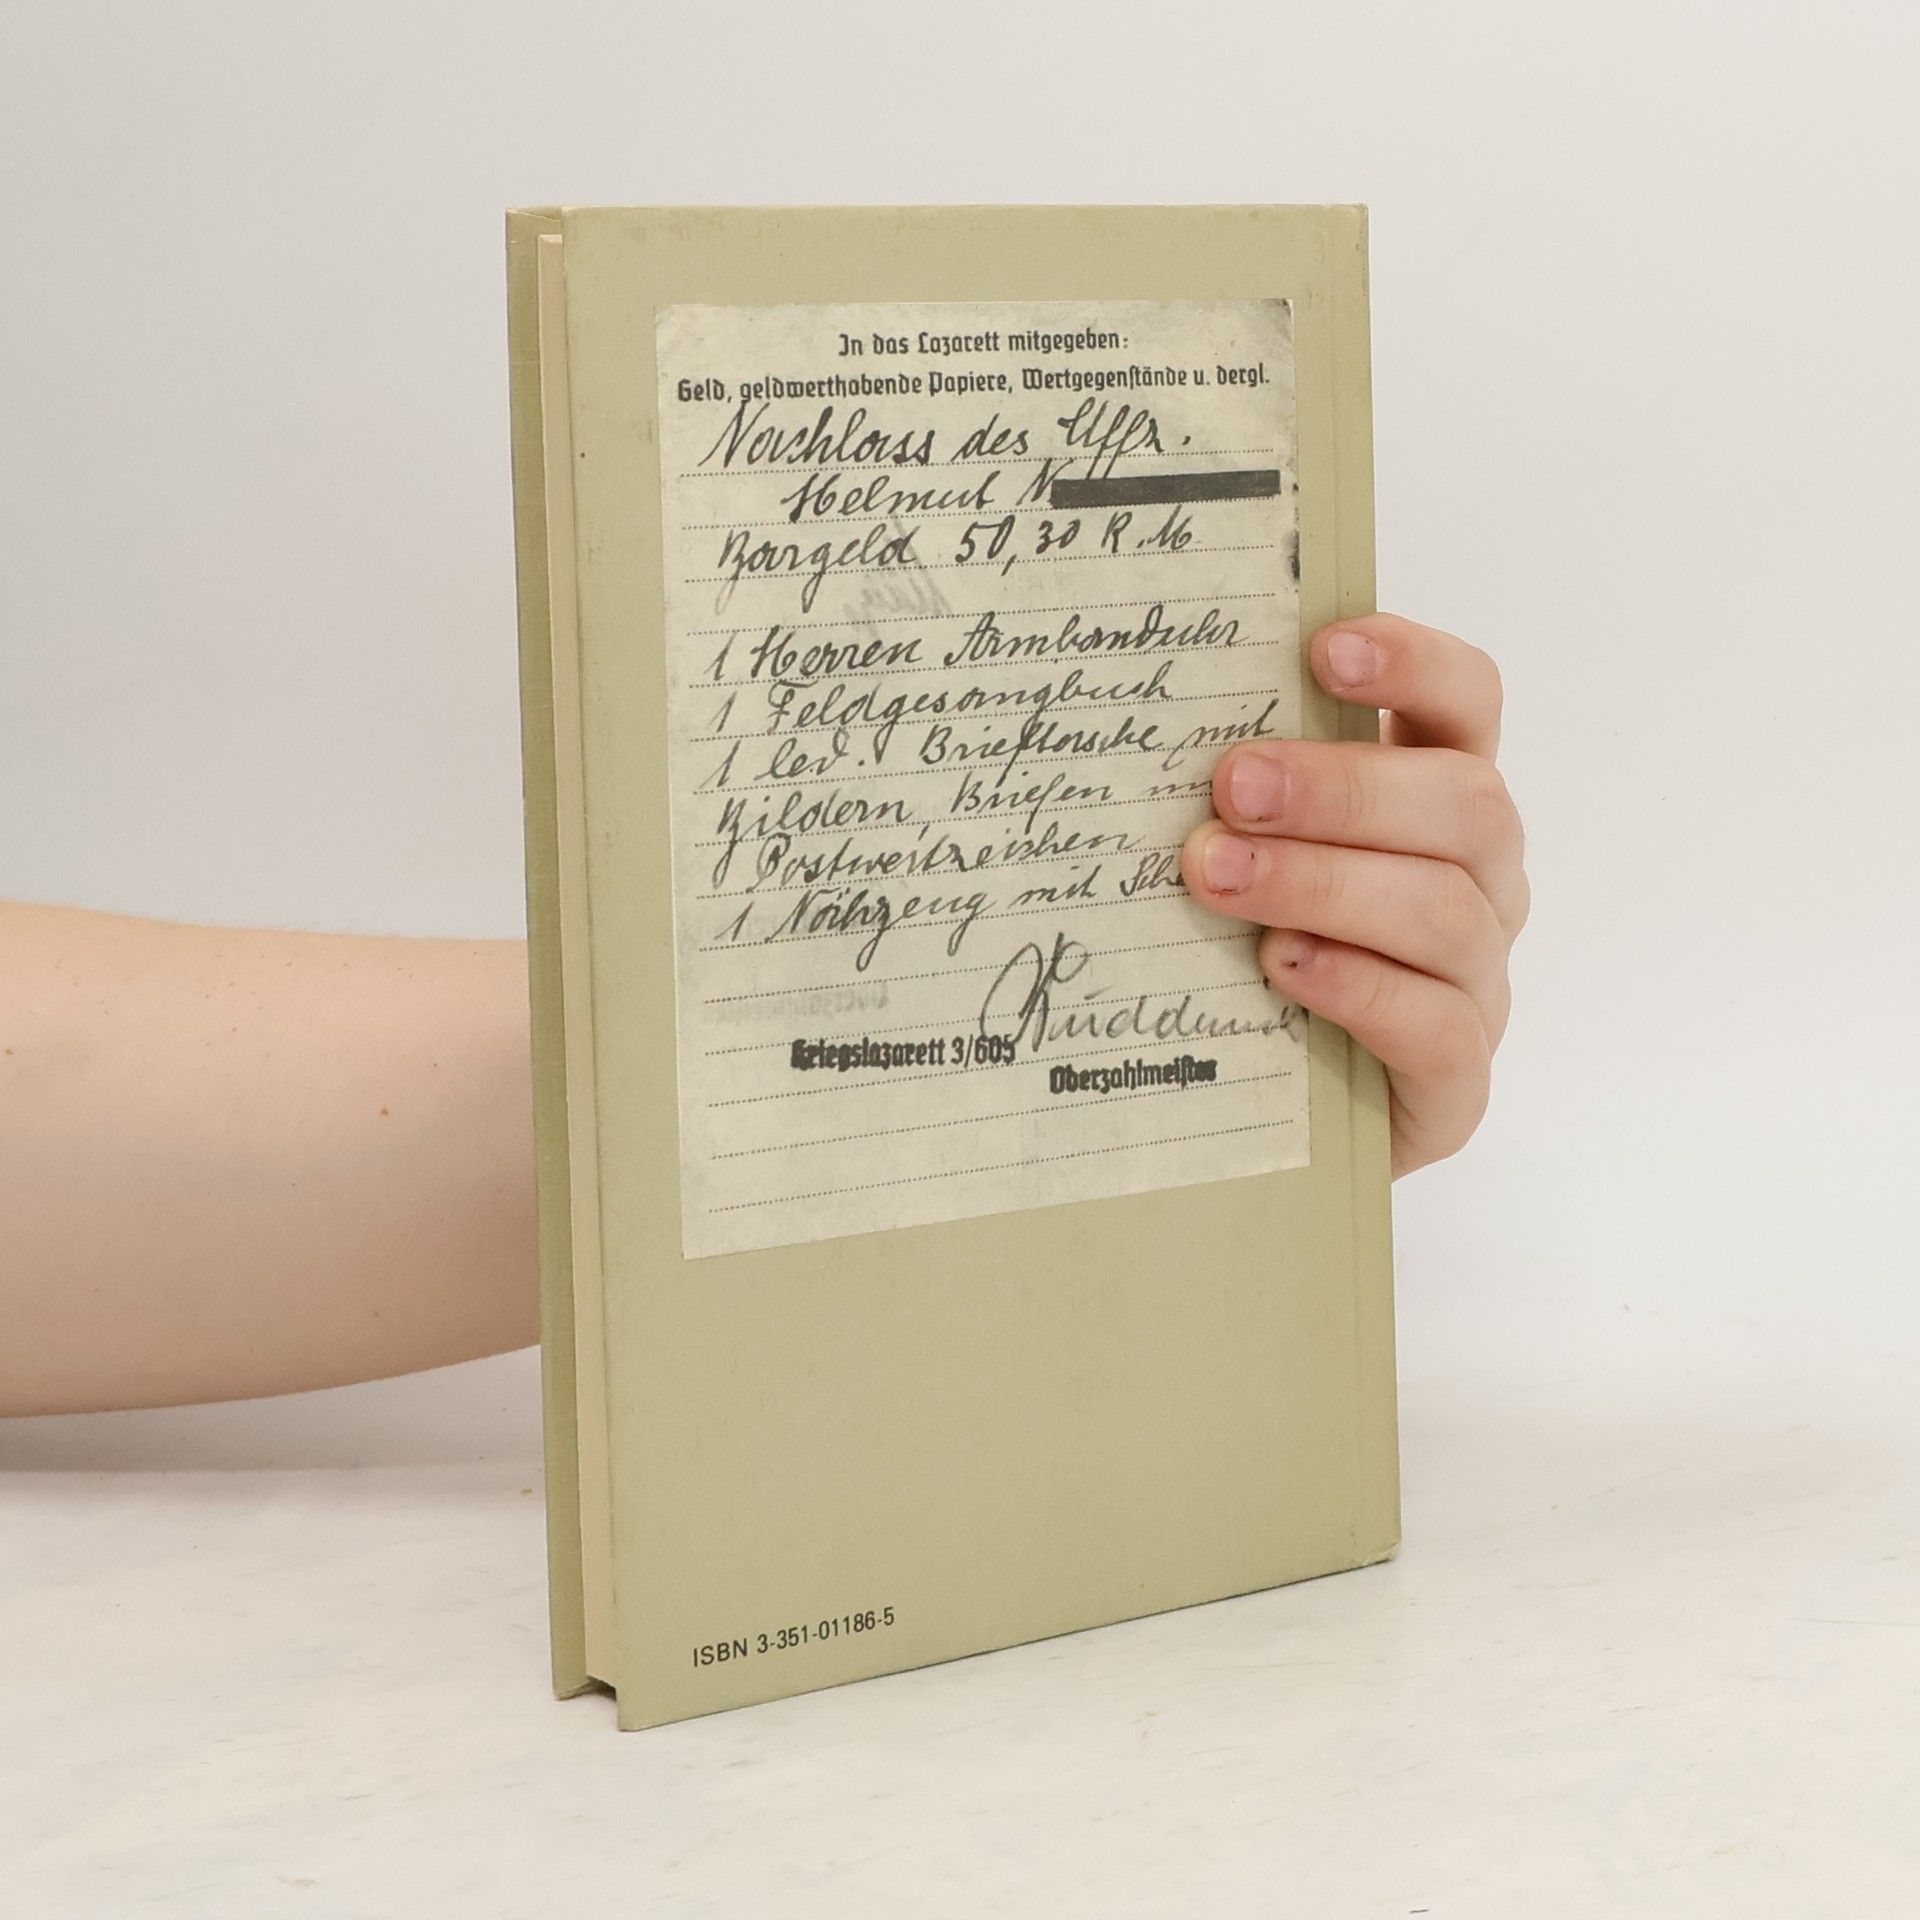 In das Lazarett mitgegeben:
Geld, geldwerthabende Papiere, Wertgegenstände u. dergl.
Nachlass des Uffz.
Helmut N
Bargeld 50,30 R.M
1 Herren Armbanduhr
1 Feldgesangbuch
1 led. Brieftasche mit
Bildern, Briefen
Postwertzeichen
1 Nähzeug mit
Kriegslazarett 3/605
Oberzahlmeister
ISBN 3-351-01186-5